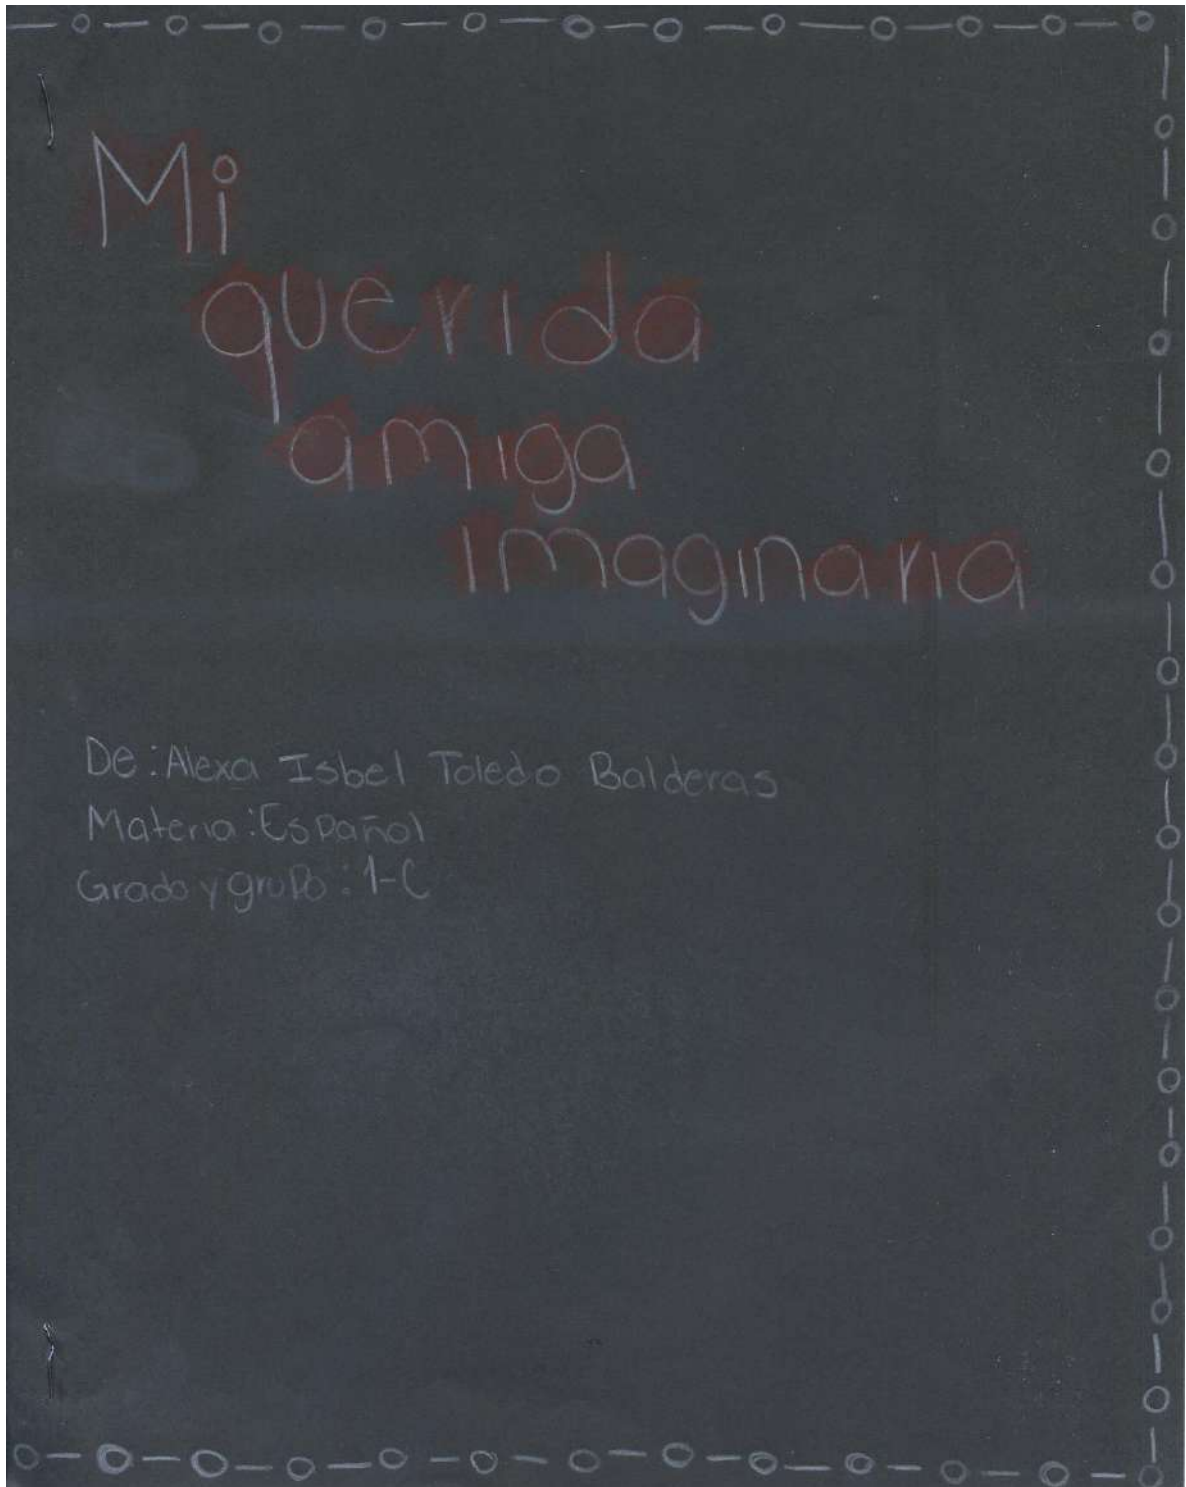 Mi
querida
amiga
imaginaria
De: Alexa Isbel Toledo Balderas
Materia: Español
Grado y grupo: 1-C